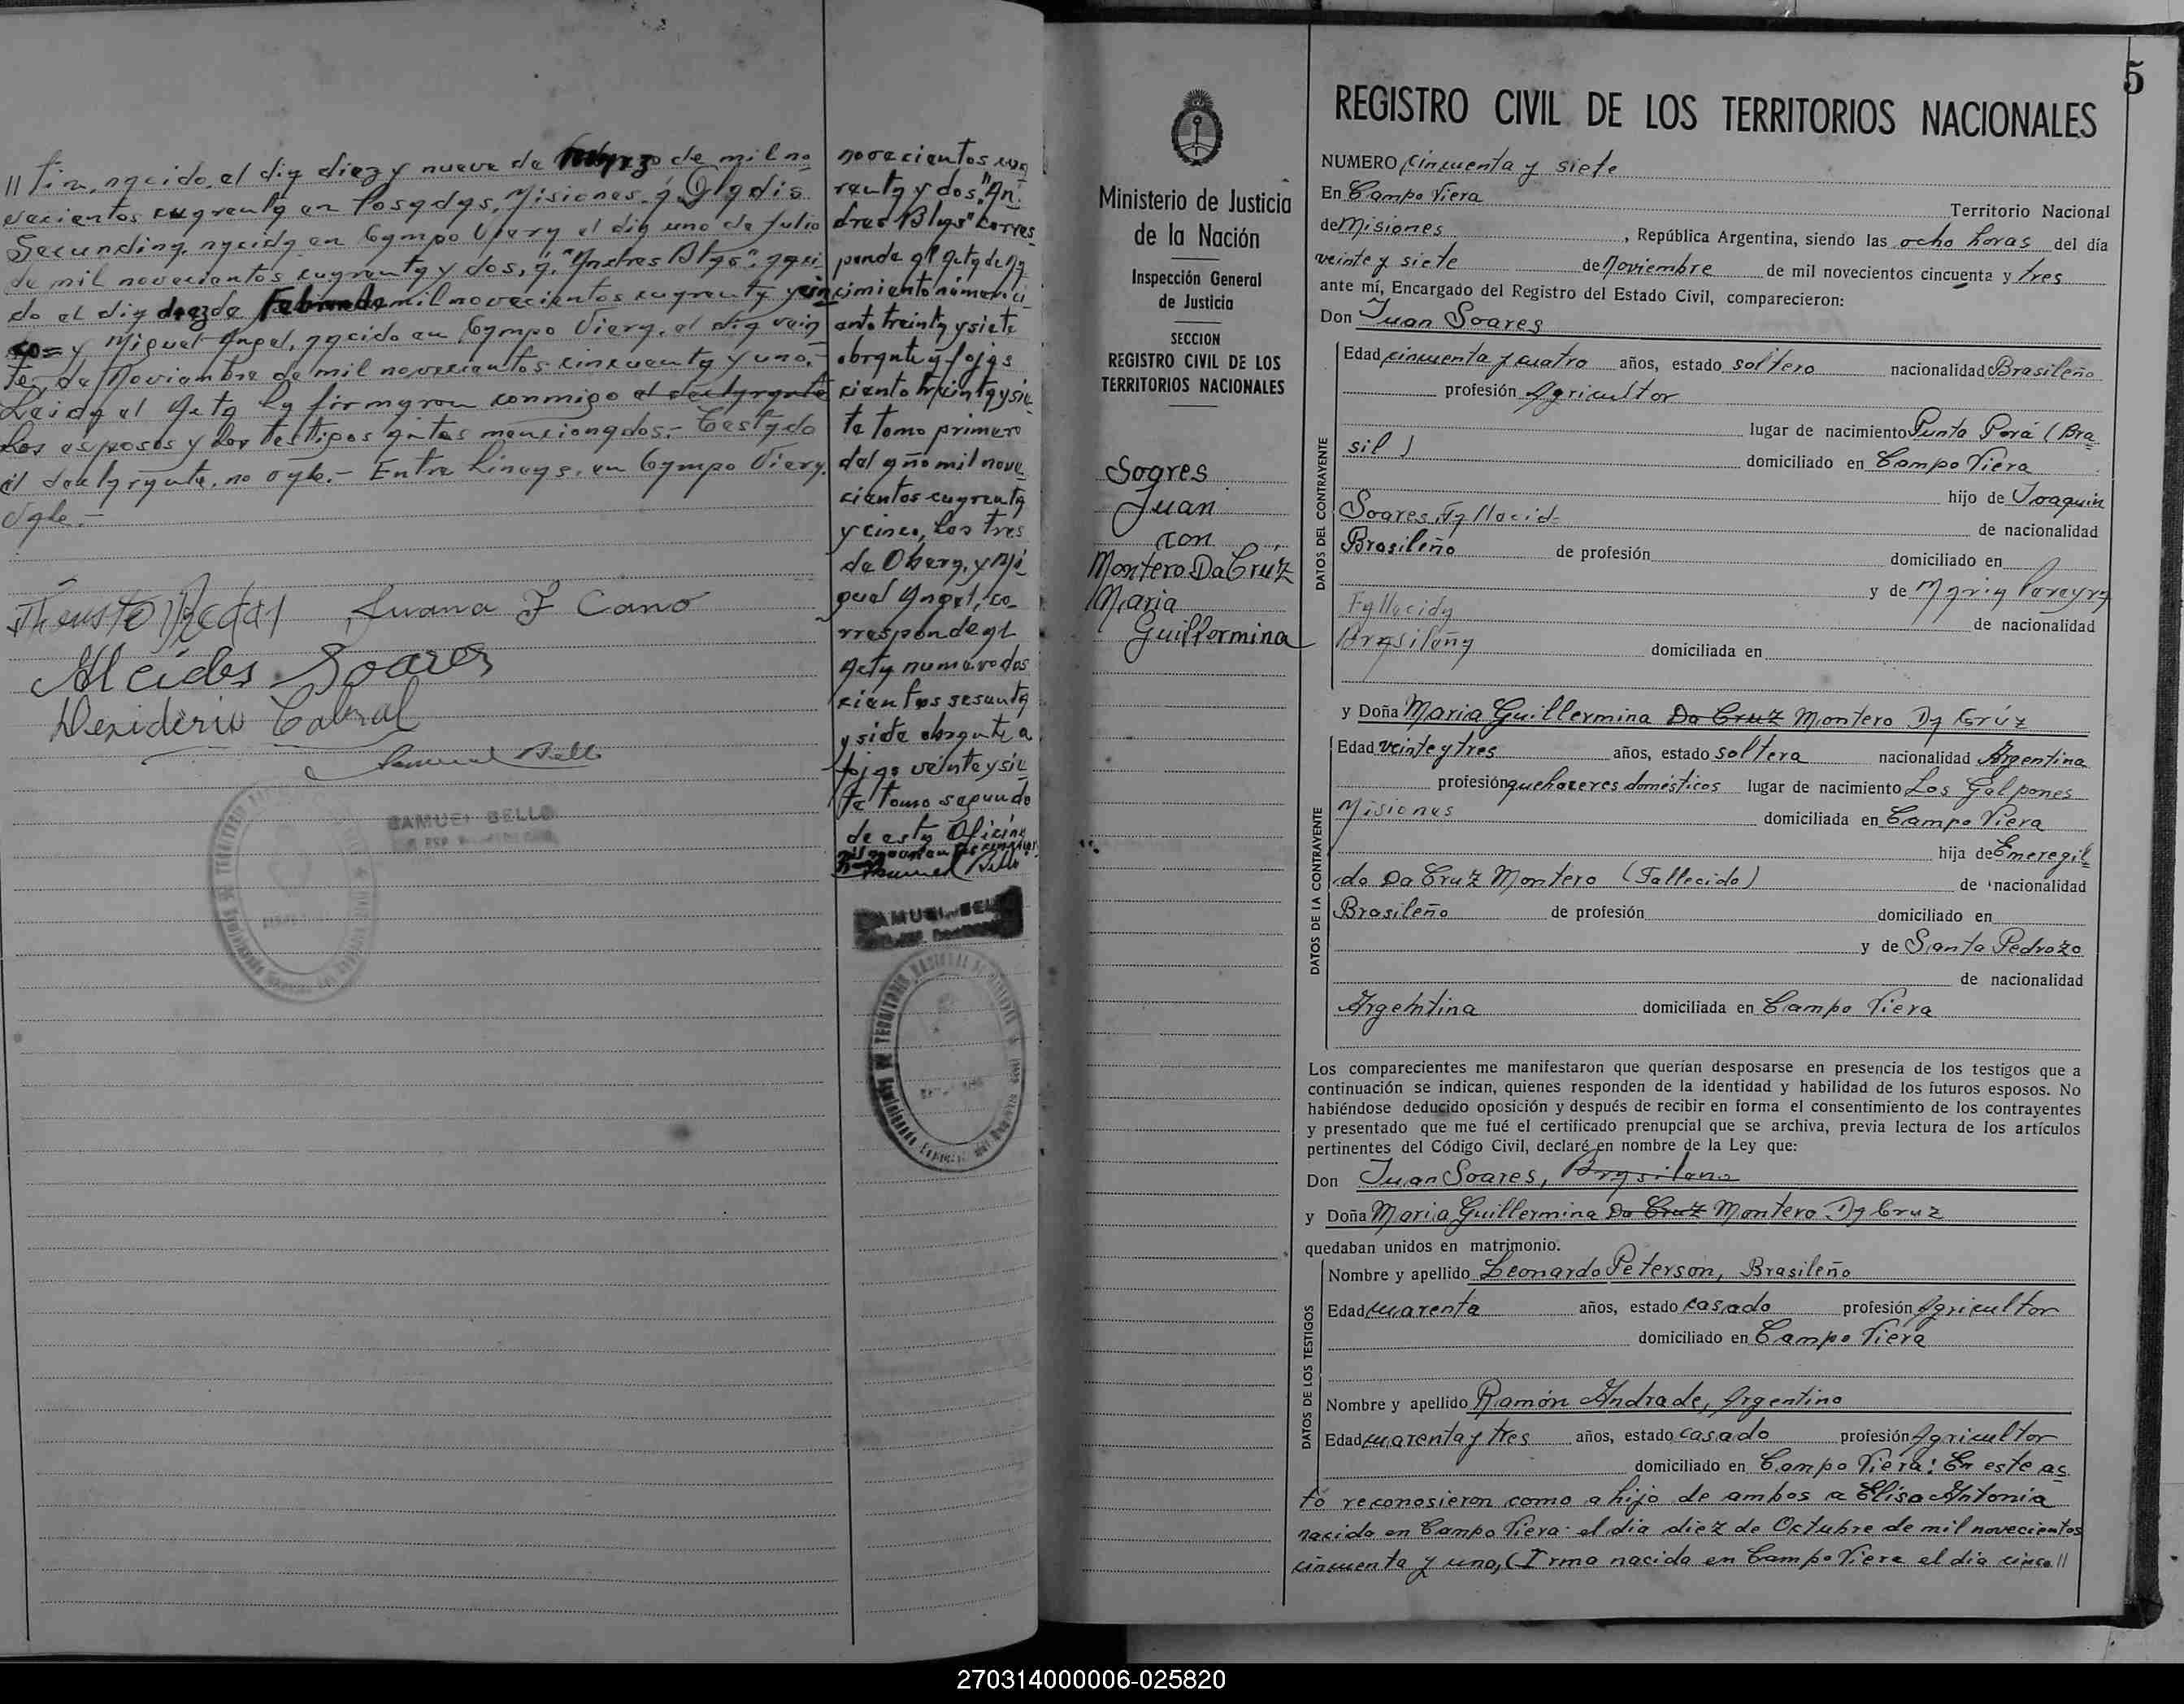 // tin, nacido, el dia diez y nueve de Marzo de mil no
vecientos cuarenta en Posadas, Misiones, a Gladis
Secundina, nacida en Campo Viera el dia uno de Julio
de mil novecientos cuarenta y dos, a "Andres Blas", naci
do el dia diez de Febrero de mil novecientos cuarenta y cin
co= y Miguel Angel, nacido en Campo Viera, el dia vein
te, de Noviembre de mil novecientos cincuenta y uno.-
Leida el Acta la firmaron conmigo el declarante
los esposos y los testigos antes mencionados.- Testado
el declarante, no vale.- Entre lineas, en Campo Viera.
Vale.-
Juana F Cano
Alcides Soares
Desiderio Cabral
Samuel Bello
SAMUEL BELLO
novecientos cua
renta y dos, "An
dres Blas" corres
ponde al Acta de Na
cimiento número ci
ento treinta y siete
obrante a fojas
ciento treinta y sie
te tomo primero
del año mil nove
cientos cuarenta
y cinco, los tres
de Obera, y Mi
guel Angel, co
rresponde al
Acta numero dos
cientos sesenta
y siete obrante a
fojas veinte y sie
te Tomo segundo
de esta Oficina
Samuel Bello
5
REGISTRO CIVIL DE LOS TERRITORIOS NACIONALES
Ministerio de Justicia
de la Nación
Inspección General
de Justicia
SECCION
REGISTRO CIVIL DE LOS
TERRITORIOS NACIONALES
Soares
Juan
con
Montero Da Crúz
Maria
Guillermina
NUMERO cincuenta y siete
En Campo Viera Territorio Nacional
de Misiones, República Argentina, siendo las ocho horas del día
veinte y siete de Noviembre de mil novecientos cincuenta y tres
ante mí, Encargado del Registro del Estado Civil, comparecieron:
Don Juan Soares
DATOS DEL CONTRAYENTE
Edad cincuenta y cuatro años, estado soltero nacionalidad Brasileño
profesión Agricultor
lugar de nacimiento Punta Porá (Bra
sil) domiciliado en Campo Viera
hijo de Joaquin
Soares, Fallecid- de nacionalidad
Brasileño de profesión domiciliado en
y de Maria Pereyra
Fallecida de nacionalidad
Brasileña domiciliada en
y Doña Maria Guillermina Da Cruz Montero Da Crúz
DATOS DE LA CONTRAYENTE
Edad veinte y tres años, estado soltera nacionalidad Argentina
profesión quehaceres domésticos lugar de nacimiento Los Galpones
Misiones domiciliada en Campo Viera
hija de Emeregil
do Da Cruz Montero (Fallecido) de nacionalidad
Brasileño de profesión domiciliado en
y de Santa Pedrozo
de nacionalidad
Argentina domiciliada en Campo Viera
Los comparecientes me manifestaron que querían desposarse en presencia de los testigos que a
continuación se indican, quienes responden de la identidad y habilidad de los futuros esposos. No
habiéndose deducido oposición y después de recibir en forma el consentimiento de los contrayentes
y presentado que me fué el certificado prenupcial que se archiva, previa lectura de los artículos
pertinentes del Código Civil, declaré en nombre de la Ley que:
Don Juan Soares, Brasileno
y Doña Maria Guillermina Da Cruz Montero Da Cruz
quedaban unidos en matrimonio.
DATOS DE LOS TESTIGOS
Nombre y apellido Leonardo Peterson, Brasileño
Edad cuarenta años, estado casado profesión Agricultor
domiciliado en Campo Viera
Nombre y apellido Ramón Andrade, Argentino
Edad cuarenta y tres años, estado casado profesión Agricultor
domiciliado en Campo Viera: En este ac
to reconosieron como a hijo de ambos a Elisa Antonia
nacida en Campo Viera el dia diez de Octubre de mil novecientos
cincuenta y uno, (Irma nacida en Campo Viera el dia cinco //
270314000006-025820